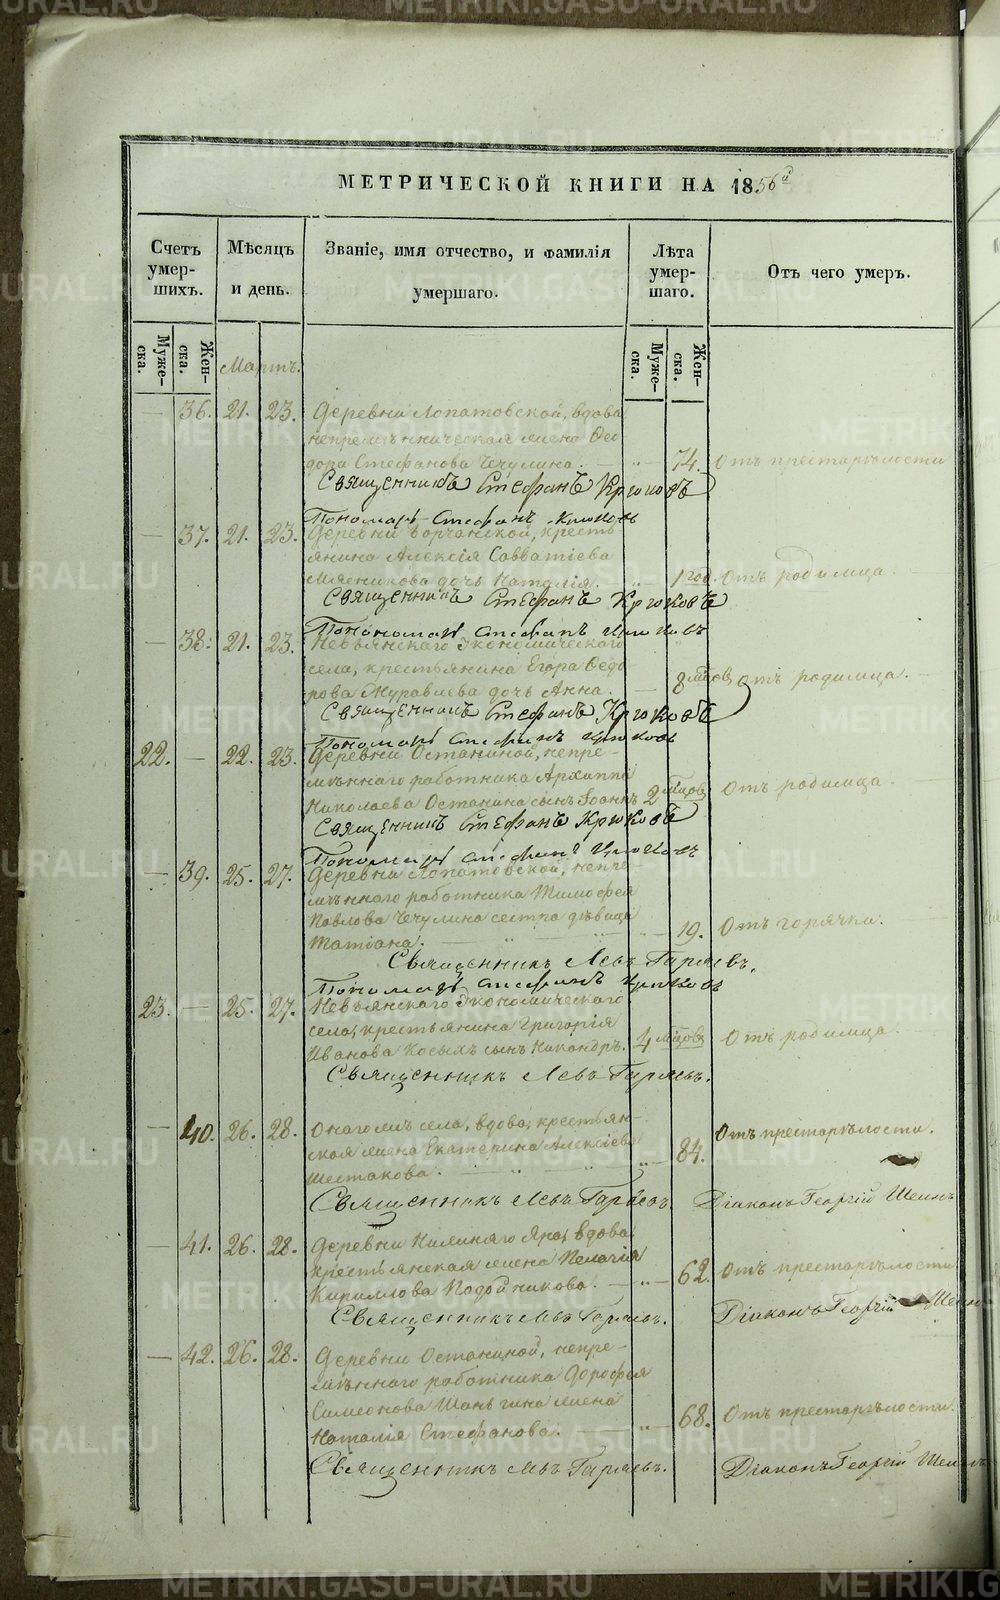 МЕТРИЧЕСКОЙ КНИГИ НА 1856й
Счетъ умер-шихъ.
Мѣсяцъ и день.
Званіе, имя отчество, и фамилія умершаго.
Лѣта умер-шаго.
Отъ чего умеръ.
Муже-ска.
Жен-ска.
Муже-ска.
Жен-ска.
Мартъ.
— 36. 21. 23. Деревни Лопатовской, вдова
непремѣнническая жена Ѳео
дора Стефанова Чечулина. — „ — 74. Отъ престарѣлости
Священникъ Стефанъ Крюковъ
Пономарь Стефанъ Крюковъ
— 37. 21. 23. Деревни Борчанской, кресть
янина Алексія Савватіева
Мясникова дочь Наталія. „ 1 год. Отъ родимца.
Священникъ Стефанъ Крюковъ
Пономарь Стефанъ Крюковъ
— 38. 21. 23. Невьянскаго Экономическаго
села, крестьянина Егора Ѳедо
рова Журавлева дочь Анна. — 8 мцовъ Отъ родимца.
Священникъ Стефанъ Крюковъ
Пономарь Стефанъ Крюковъ
22. — 22. 23. Деревни Останиной, непре-
мѣннаго работника Архиппа
Николаева Останина сынъ Іоаннъ 2 мцовъ Отъ родимца.
Священникъ Стефанъ Крюковъ
Пономарь Стефанъ Крюковъ
— 39. 25. 27. Деревни Лопатовской, непре-
мѣннаго работника Тимофея
Павлова Чечулина сестра дѣвица
Татіана. — „ — „ — 19. Отъ горячки.
Священникъ Левъ Гаряевъ.
Пономарь Стефанъ Крюковъ
23. — 25. 27. Невьянскаго Экономическаго
села, крестьянина Григорія
Иванова Косыхъ сынъ Никандръ. 4 мцовъ Отъ родимца.
Священникъ Левъ Гаряевъ.
— 40. 26. 28. Онагожъ села, вдова, крестьян-
ская жена Екатерина Алексіева
Шестакова. — „ — „ — „ — 84. Отъ престарѣлости.
Священникъ Левъ Гаряевъ. Діаконъ Георгій
— 41. 26. 28. Деревни Ниженяго Яра, вдова
крестьянская жена Пелагія
Кириллова Подойникова. — „ — 62. Отъ престарѣлости
Священникъ Левъ Гаряевъ. Діаконъ Георгій
— 42. 26. 28. Деревни Останиной, непре-
мѣннаго работника Дорофея
Симеонова Шаньгина жена
Наталія Стефанова. — „ — 68. Отъ престарѣлости.
Священникъ Левъ Гаряевъ. Діаконъ Георгій
METRIKI.GASO-URAL.RU